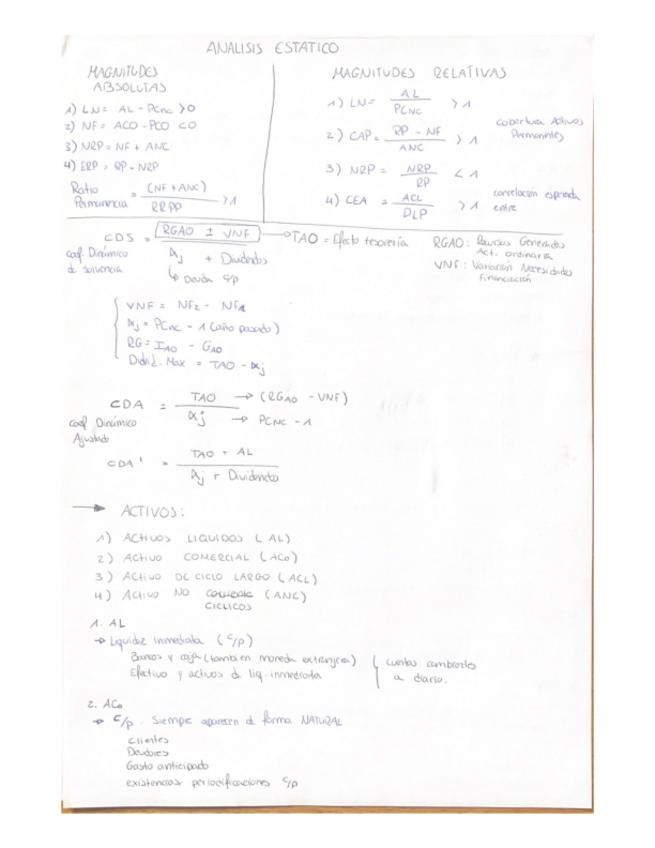 ANALISIS ESTATICO
MAGNITUDES
ABSOLUTAS
1) LN = AL - PCNC > 0
2) NF = ACO - PCO < 0
3) NRP = NF + ANC
4) ERP = RP - NRP
Ratio Permanencia = (NF + ANC) / RRPP > 1
MAGNITUDES RELATIVAS
1) LN = AL / PCNC > 1
2) CAP = RP - NF / ANC > 1
cobertura Activos
Permanentes
3) NRP = NRP / RP < 1
4) CEA = ACL / DLP > 1
correlación esperada
entre
CDS = RGAO ± VNF / αj + Dividendos
→ TAO = Efecto tesorería
coef. Dinámico
de solvencia
↳ Deuda c/p
RGAO: Recursos Generados
Act. ordinaria
VNF: Variación Necesidades
Financiación
VNF = NF2 - NF1
αj = PCNC - 1 (año pasado)
RG = IAO - GAO
Divid. Max = TAO - αj
CDA = TAO / αj
→ (RGAO - VNF)
→ PCNC - 1
coef Dinámico
Ajustado
CDA' = TAO + AL / αj + Dividendos
→ ACTIVOS:
1) ACTIVOS LIQUIDOS (AL)
2) ACTIVO COMERCIAL (ACO)
3) ACTIVO DE CICLO LARGO (ACL)
4) ACTIVO NO (ANC)
CICLICOS
1. AL
→ Liquidez inmediata (c/p)
Bancos y caja (tambien moneda extranjera)
Efectivo y activos de liq. inmediata
cuentas cambiantes
a diario.
2. ACO
→ c/p. Siempre aparecen de forma NATURAL
Clientes
Deudores
Gasto anticipado
existencias periodificaciones c/p